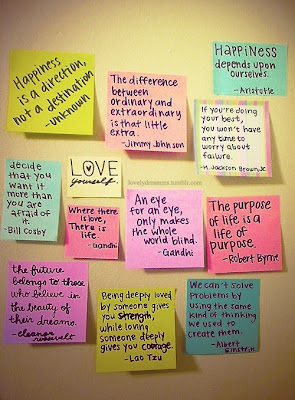 Happiness
is a direction,
not a destination
-unknown
The difference
between
ordinary and
extraordinary
is that little
extra.
-Jimmy Johnson
HAPPINESS
depends upon
ourselves.
-Aristotle
If you're doing
your best,
you won't have
any time to
worry about
failure.
-H. Jackson Brown, Jr.
decide
that you
want it
more than
you are
afraid of
it.
-Bill Cosby
LOVE
yourself.
lovelydreamerx.tumblr.com
Where there
is love,
There is
life.
-Gandhi
An eye
for an eye,
only makes
the whole
world blind.
-Gandhi
The purpose
of life is a
life of
purpose.
-Robert Byrne
the future
belongs to those
who believe in
the beauty of
their dreams.
-eleanor roosevelt
Being deeply loved
by someone gives
you strength,
while loving
someone deeply
gives you courage.
-Lao Tzu
We can't solve
problems by
using the same
kind of thinking
we used to
create them.
-Albert
Einstein